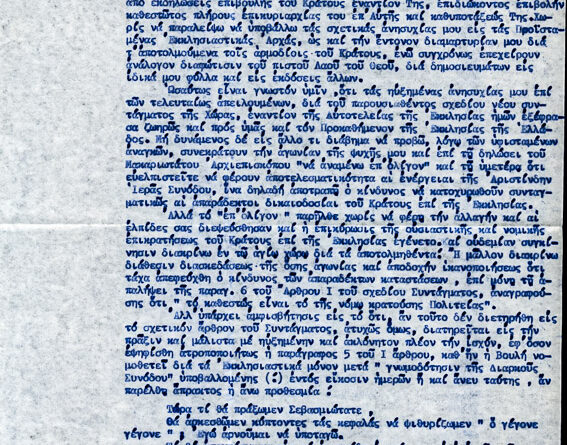 ἀπό ἐκδηλώσεις ἐπιβουλῆς τοῦ Κράτους ἐναντίον Της, ἐπιδιώκοντος ἐπιβολήν
καθεστῶτος πλήρους ἐπικυριαρχίας του ἐπ'Αὐτῆς καί καθυποτάξεώς Της, χω-
ρίς νά παραλείψω νά ὑποβάλλω τάς σχετικάς ἀνησυχίας μου εἰς τάς Προϊστα-
μένας Ἐκκλησιαστικάς Ἀρχάς, ὡς καί τήν ἔντονον διαμαρτυρίαν μου διά
τ' ἀποτολμούμενα τοῖς ἁρμοδίοις τοῦ Κράτους, ἐνῶ συγχρόνως ἐπεχείρουν
ἀνάλογον διαφώτισιν τοῦ πιστοῦ Λαοῦ τοῦ Θεοῦ, διά δημοσιευμάτων εἰς
εἰδικά μου φύλλα καί εἰς ἐκδόσεις ἄλλων.
Ὡσαύτως εἶναι γνωστόν ὑμῖν ,ὅτι τάς ηὐξημένας ἀνησυχίας μου ἐπί
τῶν τελευταίως ἀπειλουμένων, διά τοῦ παρουσιασθέντος σχεδίου νέου συν-
τάγματος τῆς Χώρας, ἐναντίον τῆς Αὐτοτελείας τῆς Ἐκκλησίας ἡμῶν ἐξέφρα-
σα ζωηρῶς καί πρός ὑμᾶς καί τόν Προκαθήμενον τῆς Ἐκκλησίας τῆς Ἑλλά-
δος. Μή δυνάμενος δέ εἰς ἄλλο τι διάβημα νά προβῶ, λόγῳ τῶν ὑφισταμένων
ἀναγκῶν, συνεκράτουν τήν ἀγωνίαν τῆς ψυχῆς μου καί ἐπί τῇ δηλώσει τοῦ
Μακαριωτάτου Ἀρχιεπισκόπου "νά ἀναμένω ἐπ'ὀλίγον" καί τῇ ὑμετέρᾳ ὅτι
εὐελπιστεῖτε νά φέρουν ἀποτελεσματικότητα αἱ ἐνέργειαι τῆς Ἀριστίνδην
Ἱερᾶς Συνόδου, ἵνα δηλαδή ἀποτραπῇ ὁ κίνδυνος νά κατοχυρωθοῦν συνταγ-
ματικῶς αἱ ἀπαράδεκτοι δικαιοδοσίαι τοῦ Κράτους ἐπί τῆς Ἐκκλησίας.
Ἀλλά τό "ἐπ'ὀλίγον " παρῆλθε χωρίς νά φέρῃ τήν ἀλλαγήν καί αἱ
ἐλπίδες σας διεψεύσθησαν καί ἡ ἐπικύρωσις τῆς οὐσιαστικῆς καί νομικῆς
ἐπικρατήσεως τοῦ Κράτους ἐπί τῆς Ἐκκλησίας ἐγένετο.Καί οὐδεμίαν συγκί-
νησιν διακρίνω ἐν τῷ ἁγίῳ χώρῳ διά τά ἀποτολμηθέντα. Ἤ μᾶλλον διακρίνω
διάθεσιν διασκεδάσεως τῆς ὅσης ἀγωνίας καί ἀποδοχήν ἱκανοποιήσεως ὅτι
τάχα ἀπεφεύχθη ὁ κίνδυνος τῶν ἀπαραδέκτων καταστάσεων , ἐπί μόνῃ τῇ ἀ-
παλήψει τῆς παραγ. 6 τοῦ Ἄρθρου Ι τοῦ σχεδίου Συντάγματος, ἀναγραφού-
σης ὅτι " τό καθεστώς εἶναι τό τῆς νόμῳ κρατούσης Πολιτείας".
Ἀλλ'ὑπάρχει ἀμφισβήτησις εἰς τό ὅτι, ἄν τοῦτο δέν διετηρήθη εἰς
τό σχετικόν ἄρθρον τοῦ Συντάγματος, ἀτυχῶς ὅμως, διατηρεῖται εἰς τήν
πρᾶξιν καί μάλιστα μέ ηὐξημένην καί ἀκλόνητον πλέον τήν ἰσχύν, ἐφ'ὅσον
ἐψηφίσθη ἀτροποποιήτως ἡ παράγραφος 5 τοῦ Ι ἄρθρου, καθ'ἥν ἡ Βουλή νο-
μοθετεῖ διά τά Ἐκκλησιαστικά μόνον μετά " γνωμοδότησιν τῆς Διαρκοῦς
Συνόδου" ὑποβαλλομένης (!) ἐντός εἴκοσιν ἡμερῶν ἤ καί ἄνευ ταύτης , ἄν
παρέλθῃ ἄπρακτος ἡ ἄνω προθεσμία !
Τώρα τί θά πράξωμεν Σεβασμιώτατε ;
Θά ἀρκεσθῶμεν κύπτοντες τάς κεφαλάς νά ψιθυρίζωμεν " ὅ γέγονε
γέγονε " ; Ἐγώ ἀρνοῦμαι νά ὑποταγῶ.